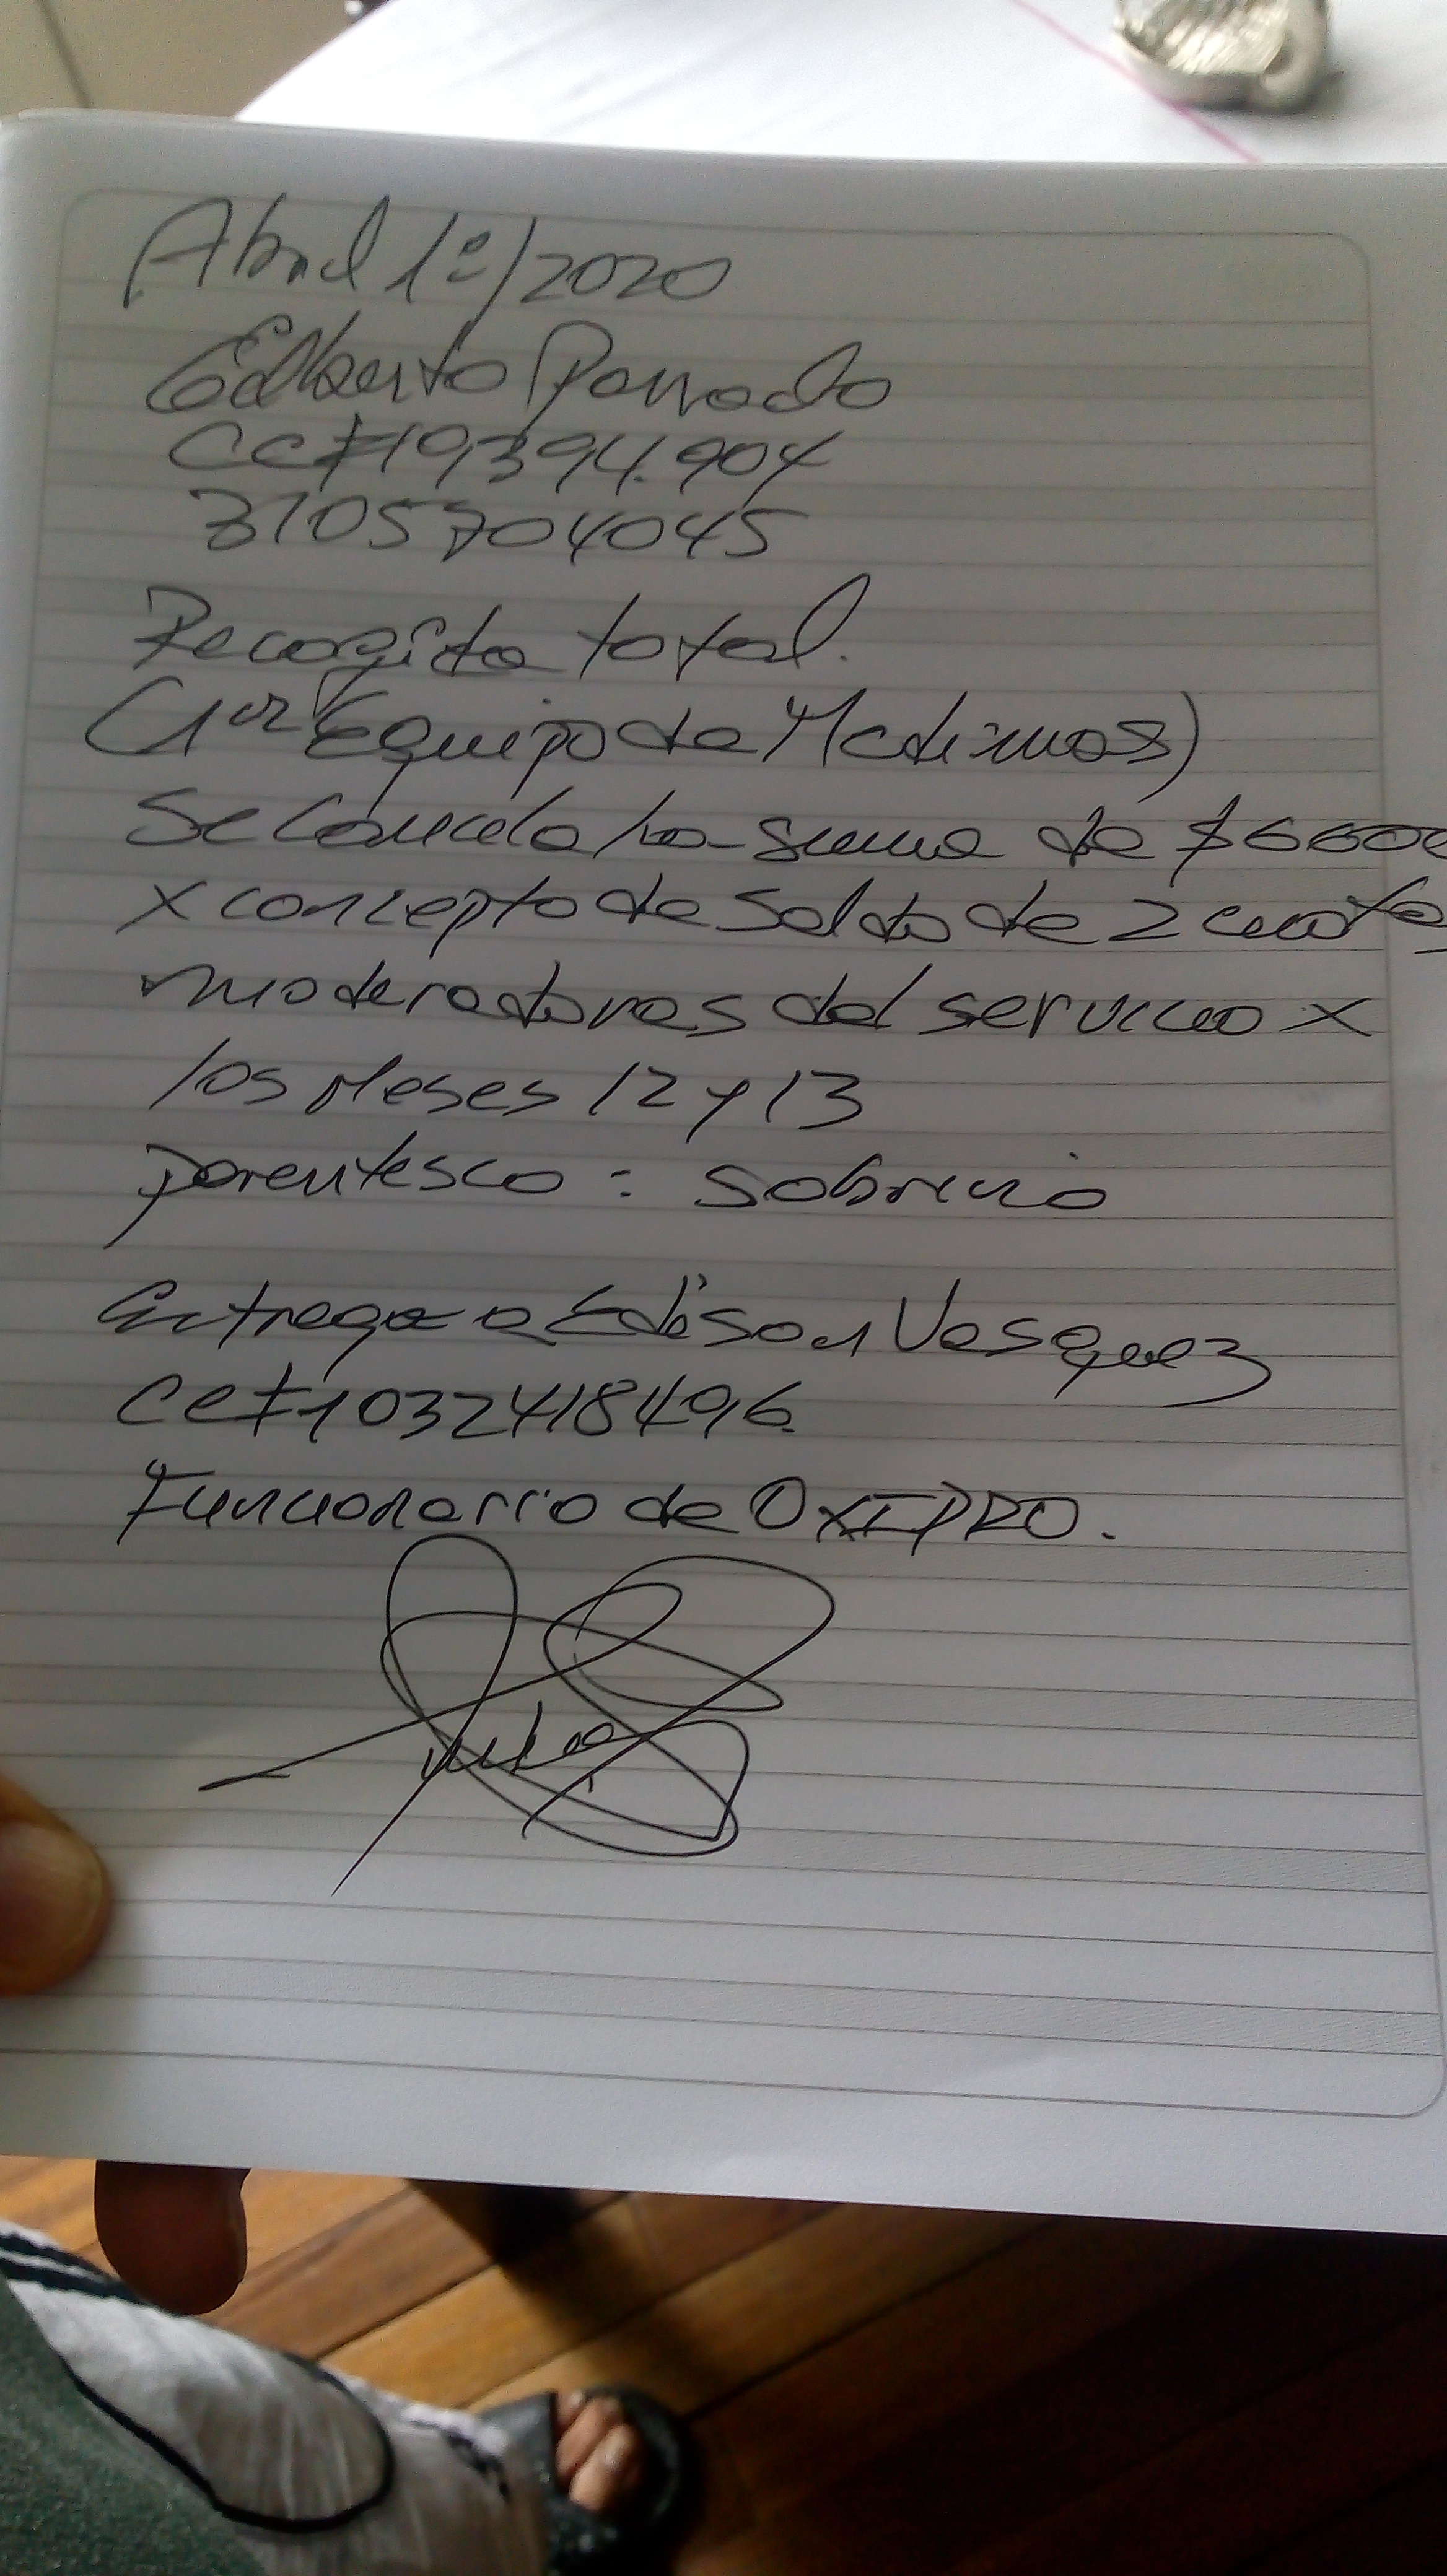 Abril 1º/2020
Edilberto Parrado
CC#19394.904
3105704045
Recogida total.
(1er Equipo de Medimas)
Se cancela la suma de $6600
x concepto de saldo de 2 cuotas
moderadoras del servicio x
los Meses 12 y 13
parentesco: sobrino
Entrega a Edison Vasquez
CC#1032418496.
Funcionario de OXIPRO.